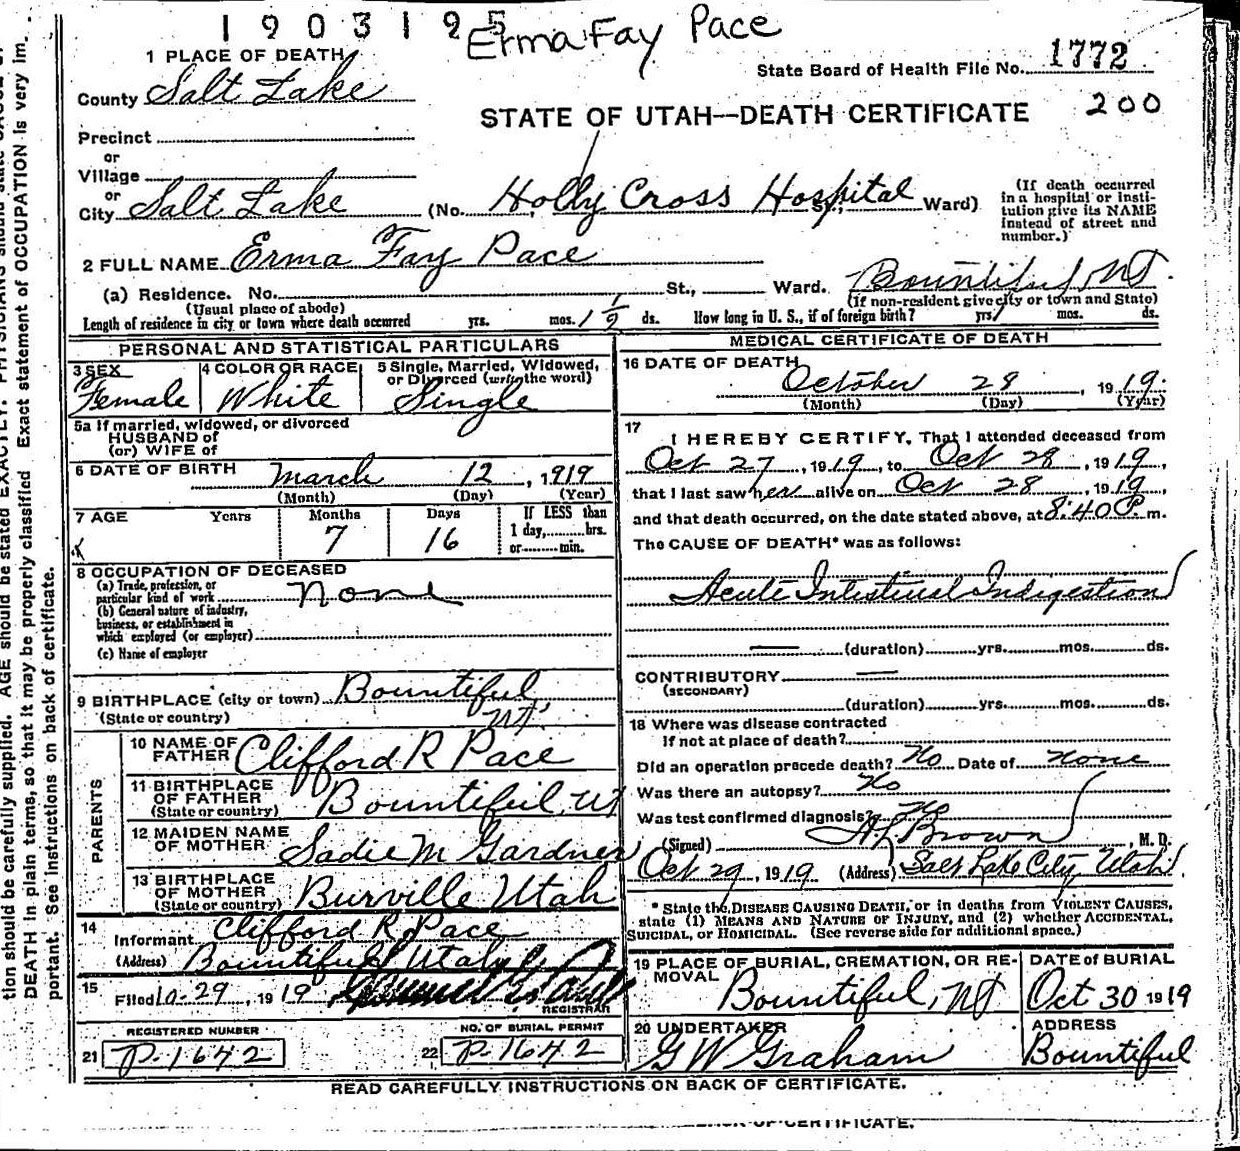 1903195
Erma Fay Pace
1 PLACE OF DEATH
State Board of Health File No. 1772
County Salt Lake
200
STATE OF UTAH—DEATH CERTIFICATE
Precinct
or
Village
or
City Salt Lake (No. Holly Cross Hospital St., Ward)
(If death occurred in a hospital or insti-
tution give its NAME
instead of street and
number.)
2 FULL NAME Erma Fay Pace
(a) Residence. No. St., Ward. Bountiful, Ut
(Usual place of abode) (If non-resident give city or town and State)
Length of residence in city or town where death occurred yrs. mos. 1 1/2 ds. How long in U. S., if of foreign birth? yrs. mos. ds.
PERSONAL AND STATISTICAL PARTICULARS
3 SEX Female
4 COLOR OR RACE White
5 Single, Married, Widowed,
or Divorced (write the word)
Single
5a If married, widowed, or divorced
HUSBAND of
(or) WIFE of
6 DATE OF BIRTH March 12, 1919
(Month) (Day) (Year)
7 AGE Years Months Days If LESS than
7 16 1 day, hrs.
or min.
8 OCCUPATION OF DECEASED
(a) Trade, profession, or
particular kind of work None
(b) General nature of industry,
business, or establishment in
which employed (or employer)
(c) Name of employer
9 BIRTHPLACE (city or town) Bountiful
(State or country) Ut
PARENTS
10 NAME OF
FATHER Clifford R Pace
11 BIRTHPLACE
OF FATHER
(State or country) Bountiful, Ut
12 MAIDEN NAME
OF MOTHER Sadie M Gardner
13 BIRTHPLACE
OF MOTHER
(State or country) Burville Utah
14
Informant Clifford R Pace
(Address) Bountiful Utah
15
Filed 10-29, 1919
REGISTRAR
REGISTERED NUMBER
21 P-1642
NO. OF BURIAL PERMIT
22 P-1642
MEDICAL CERTIFICATE OF DEATH
16 DATE OF DEATH
October 28, 1919
(Month) (Day) (Year)
17
I HEREBY CERTIFY, That I attended deceased from
Oct 27, 1919, to Oct 28, 1919,
that I last saw her alive on Oct 28, 1919,
and that death occurred, on the date stated above, at 8:40 P m.
The CAUSE OF DEATH* was as follows:
Acute Intestinal Indigestion
(duration) yrs. mos. ds.
CONTRIBUTORY
(SECONDARY)
(duration) yrs. mos. ds.
18 Where was disease contracted
if not at place of death?
Did an operation precede death? No Date of None
Was there an autopsy? No
Was test confirmed diagnosis? No
(Signed) Brown, M. D.
Oct 29, 1919 (Address) Salt Lake City, Utah
* State the DISEASE CAUSING DEATH, or in deaths from VIOLENT CAUSES,
state (1) MEANS AND NATURE OF INJURY, and (2) whether ACCIDENTAL,
SUICIDAL, or HOMICIDAL. (See reverse side for additional space.)
19 PLACE OF BURIAL, CREMATION, OR RE-
MOVAL
Bountiful, Ut
DATE of BURIAL
Oct 30 1919
20 UNDERTAKER
G W Graham
ADDRESS
Bountiful
READ CAREFULLY INSTRUCTIONS ON BACK OF CERTIFICATE.
OF CERTIFICATE.
tion should be carefully supplied. AGE should be stated EXACTLY. PHYSICIANS should state
DEATH in plain terms, so that it may be properly classified. Exact statement of OCCUPATION is very im-
portant. See instructions on back of certificate.